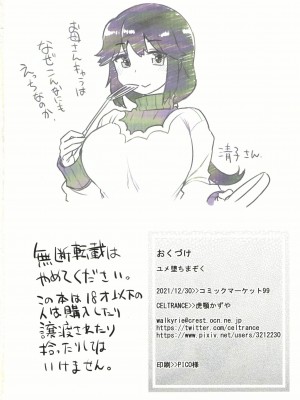 お母さんキャラは
なぜこんなにも
えっちなのか、
清子さん
無断転載は
やめてください。
この本は18才以下の
人は購入したり
譲渡されたり
拾ったりしては
いけません。
おくづけ
ユメ堕ちまぞく
2021/12/30>>コミックマーケット99
CELTRANCE>>虎顎かずや
walkyrie@crest.ocn.ne.jp
https://twitter.com/celtrance
https://www.pixiv.net/users/3212230
印刷>>PICO様